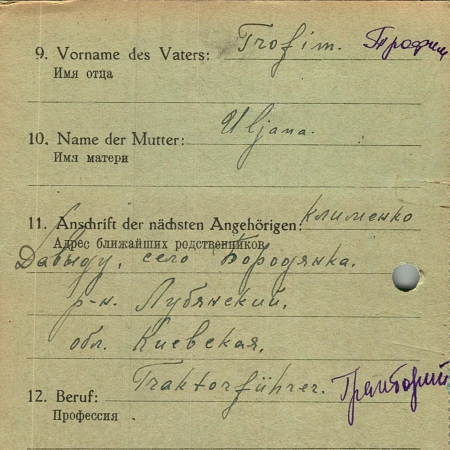 9. Vorname des Vaters: Trofim. Трофим
Имя отца
10. Name der Mutter: Uljana.
Имя матери
11. Anschrift der nächsten Angehörigen: Клименко
Адрес ближайших родственников
Давыду, село Бородянка,
р-н. Лубянский,
обл. Киевская,
12. Beruf: Traktorführer.
Профессия